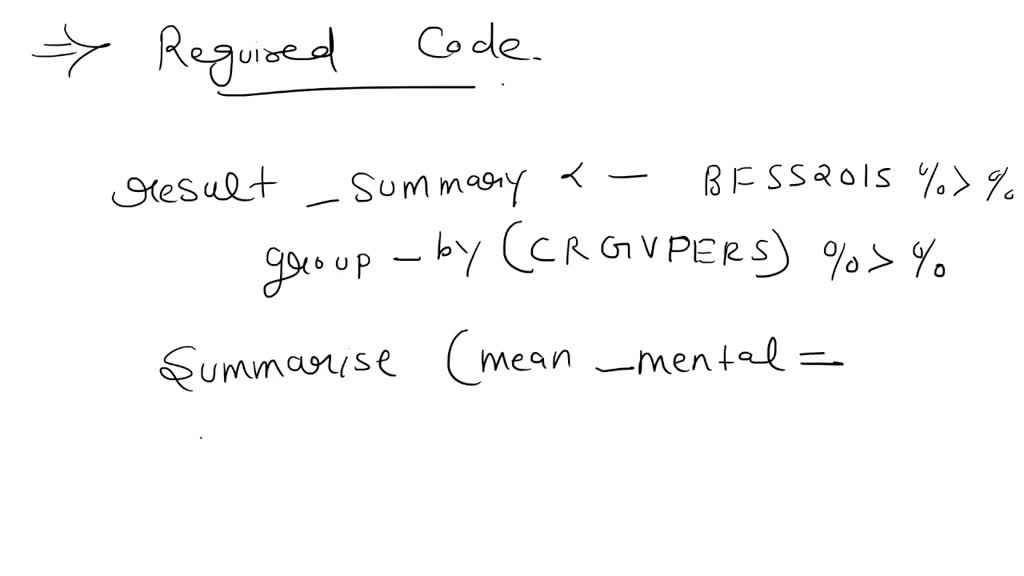 ⇒ Required Code.
result_summary < - BFSS2015 %>%
group-by (CRGVPERS) %>%
Summarise (mean_mental =